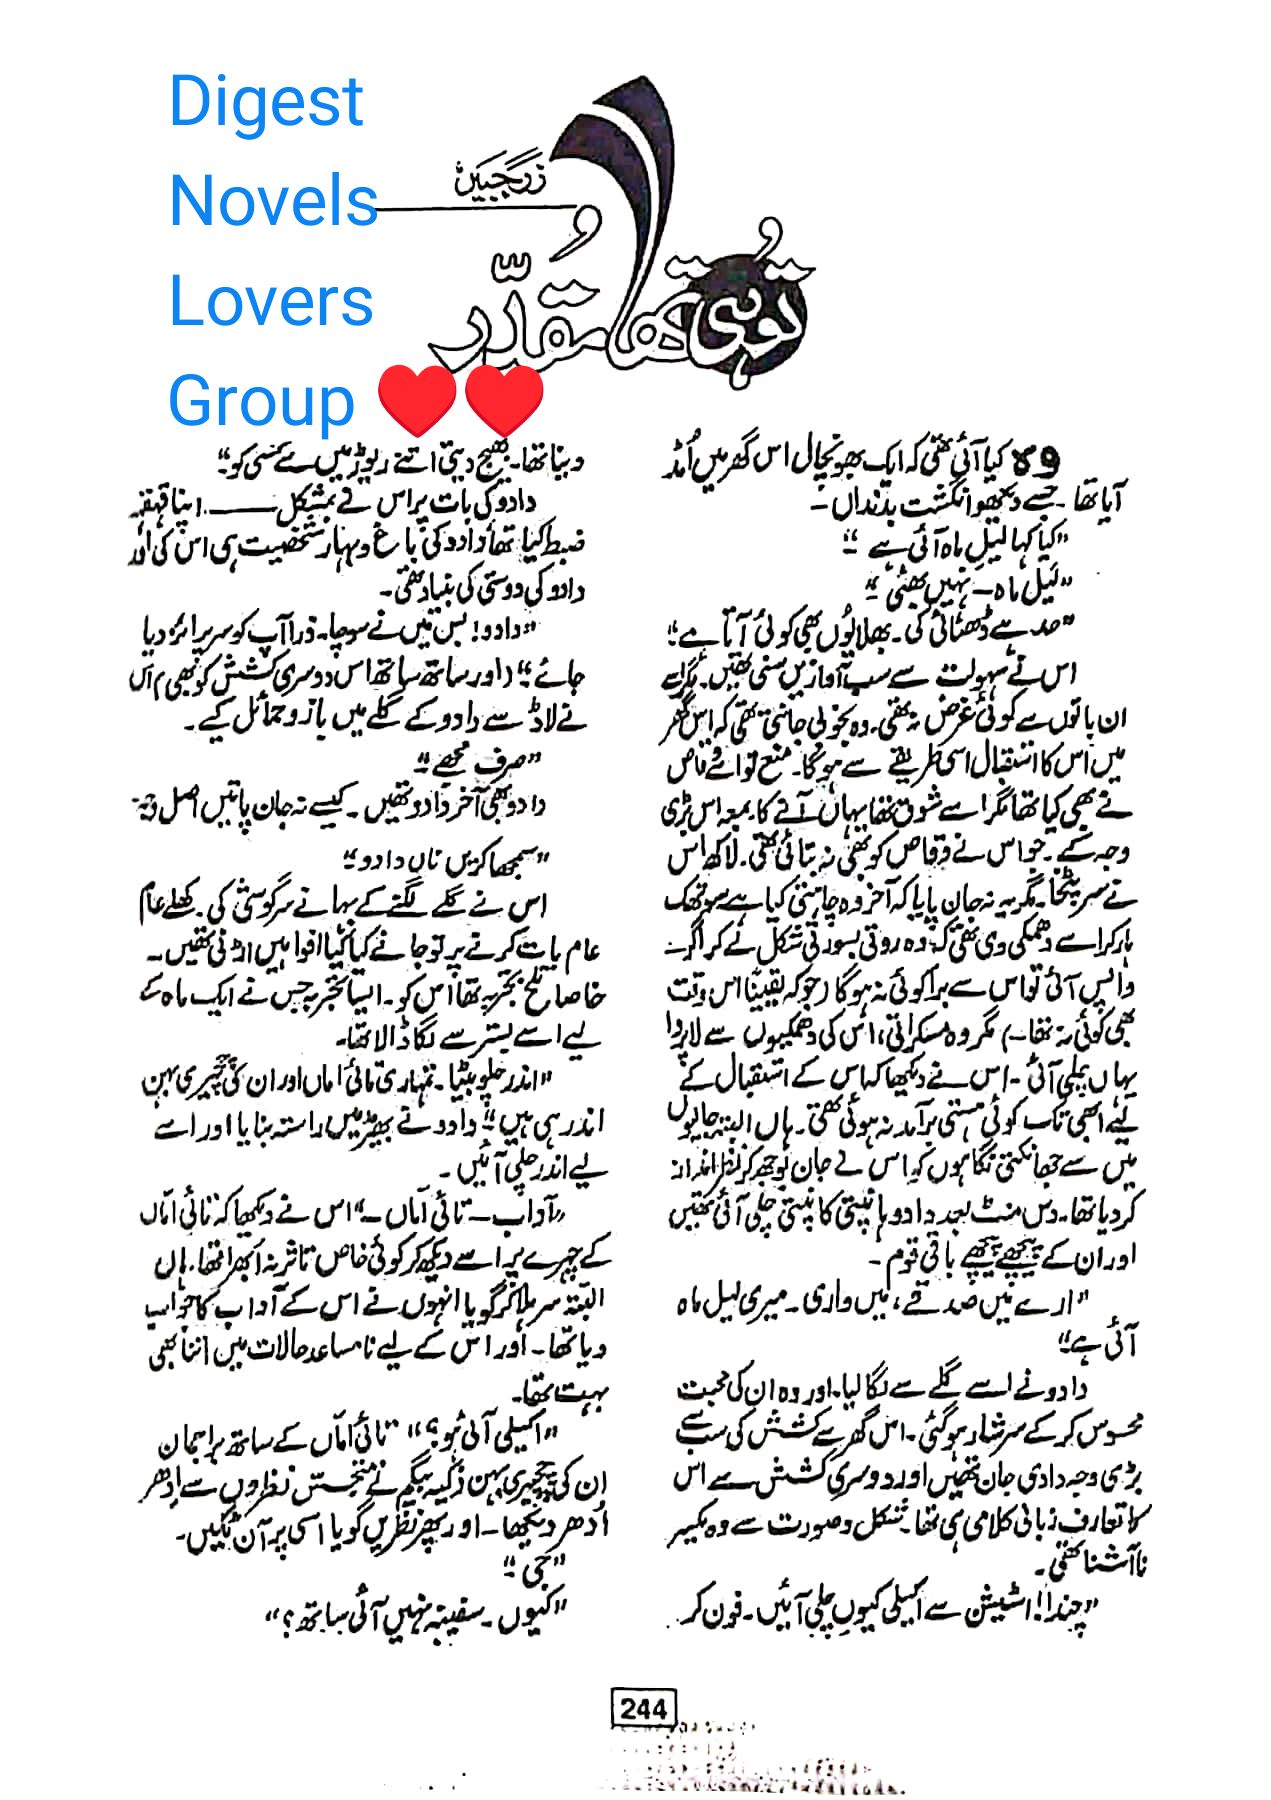 Digest
Novels
Lovers
Group ❤️❤️
زرجبیں
تو ہی تھا مقدر
وہ کیا آئی تھی کہ ایک بھونچال اس گھر میں اُمڈ
آیا تھا۔ جسے دیکھو انگشت بدنداں۔
”کیا کہا لیل ماہ آئی ہے“
”لیل ماہ۔ نہیں بھئی“
”حد ہے ڈھٹائی کی۔ بھلا یوں بھی کوئی آتا ہے“
اس نے سہولت سے سب آوازیں سنی تھیں۔ مگر اسے
ان باتوں سے کوئی غرض نہ تھی۔ وہ بخوبی جانتی تھی کہ اس گھر
میں اس کا استقبال اسی طریقے سے ہوگا۔ منع تو اسے وقاص
نے بھی کیا تھا مگر اسے شوق تھا یہاں آنے کا بمعہ اس بڑی
وجہ کے۔ جو اس نے وقاص کو بھی نہ بتائی تھی۔ لاکھ اس
نے سر پٹخا۔ مگر یہ نہ جان پایا کہ آخر وہ چاہتی کیا ہے سو تھک
ہار کر اسے دھمکی دی تھی کہ وہ روتی بسورتی شکل لے کر اگر
واپس آئی تو اس سے برا کوئی نہ ہوگا (جو کہ یقیناً اس وقت
بھی کوئی نہ تھا۔) مگر وہ مسکراتی، اس کی دھمکیوں سے لاپروا
یہاں چلی آئی۔ اس نے دیکھا کہ اس کے استقبال کے
لیے ابھی تک کوئی ہستی برآمد نہ ہوئی تھی۔ ہاں البتہ جالیوں
میں سے جھانکتی نگاہوں کو اس نے جان بوجھ کر نظر انداز
کر دیا تھا۔ دس منٹ بعد دادو ہانپتی کانپتی چلی آئی تھیں
اور ان کے پیچھے پیچھے باقی قوم۔
”ارے میں صدقے، میں واری۔ میری لیل ماہ
آئی ہے“
دادو نے اسے گلے سے لگا لیا۔ اور وہ ان کی محبت
محسوس کر کے سرشار ہو گئی۔ اس گھر سے کشش کی سب سے
بڑی وجہ دادی جان تھیں اور دوسری کشش سے اس
کا تعارف زبانی کلامی ہی تھا۔ شکل و صورت سے وہ یکسر
ناآشنا تھی۔
”چندا! اسٹیشن سے اکیلی کیوں چلی آئیں۔ فون کر
دینا تھا۔ بھیج دیتی اتنے ریوڑ میں سے کسی کو“
دادو کی بات پر اس نے بمشکل ــــــ اپنا قہقہہ
ضبط کیا تھا دادو کی باغ و بہار شخصیت ہی اس کی اور
دادو کی دوستی کی بنیاد تھی۔
”دادو! بس میں نے سوچا۔ ذرا آپ کو سرپرائز دیا
جائے“ (اور ساتھ ساتھ اس دوسری کشش کو بھی) اس
نے لاڈ سے دادو کے گلے میں بازو حمائل کیے۔
”صرف مجھے“
دادو بھی آخر دادو تھیں۔ کیسے نہ جان پاتیں اصل وجہ
”سمجھا کریں ناں دادو“
اس نے گلے لگنے کے بہانے سرگوشی کی۔ کھلے عام
عام بات کرنے پر تو جانے کیا کیا افواہیں اڑنی تھیں۔
خاصا تلخ تجربہ تھا اس کو۔ ایسا تجربہ جس نے ایک ماہ کے
لیے اسے بستر سے لگا ڈالا تھا۔
”اندر چلو بیٹا۔ تمہاری تائی اماں اور ان کی چچیری بہن
اندر ہی ہیں“ دادو نے بھیڑ میں راستہ بنایا اور اسے
لیے اندر چلی آئیں۔
”آداب۔ تائی اماں۔“ اس نے دیکھا کہ تائی اماں
کے چہرے پر اسے دیکھ کر کوئی خاص تاثر نہ ابھرا تھا۔ ہاں
البتہ سر ہلا کر گویا انہوں نے اس کے آداب کا جواب
دیا تھا۔ اور اس کے لیے نامساعد حالات میں اتنا بھی
بہت تھا۔
”اکیلی آئی ہو؟“ تائی اماں کے ساتھ براجمان
ان کی چچیری بہن ذکیہ بیگم نے متجسس نظروں سے اِدھر
اُدھر دیکھا۔ اور پھر نظریں گویا اسی پر آن ٹکیں۔
”جی“
”کیوں۔ سفینہ نہیں آئی ساتھ؟“
244